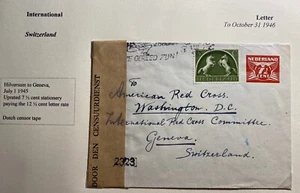 International
Switzerland
Letter
To October 31 1946
Hilversum to Geneva,
July 1 1945
Uprated 7 ½ cent stationery
paying the 12 ½ cent letter rate
Dutch censor tape
DOOR DEN CENSUURDIENST
NEDERLAND
To
American Red Cross.
Washington. D.C.
International Red Cross Committee
Geneva.
Switzerland.
2323